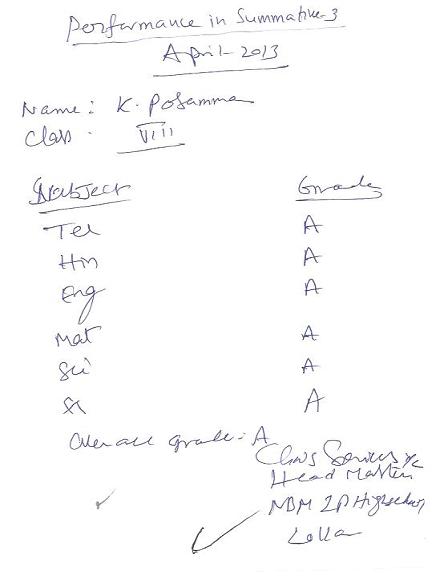 Performance in Summative-3
April-2013
Name: K. Posamma
Class. VIII
Subject Grade
Tel A
Hin A
Eng A
Mat A
Sci A
A
Over all grade:- A
Head Master
NBM ZP High school
Lolla